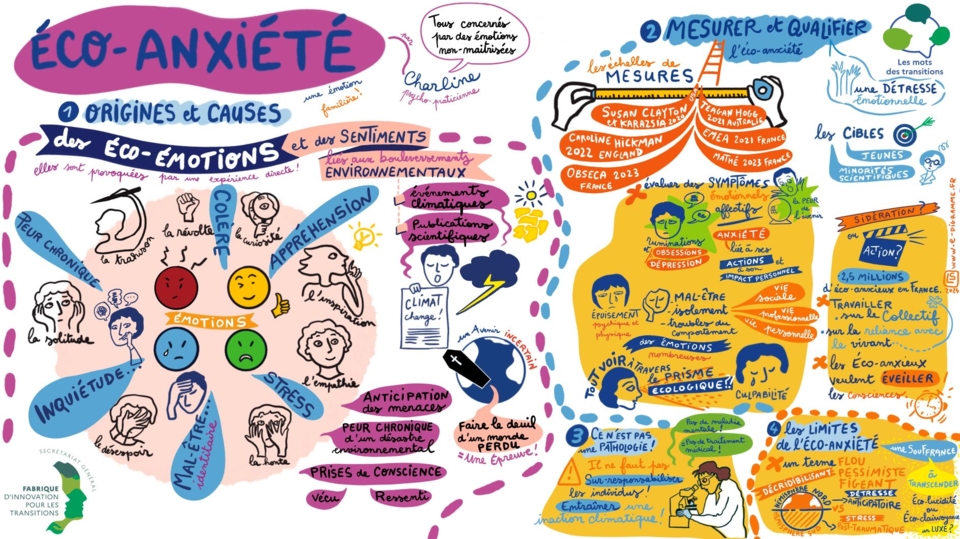 ÉCO-ANXIÉTÉ
par
Tous concernés
par des émotions
non-maîtrisées
Charline
psycho-praticienne
une émotion
familière!
1 ORIGINES et CAUSES
des ÉCO-ÉMOTIONS et des SENTIMENTS
liés aux bouleversements
ENVIRONNEMENTAUX
elles sont provoquées par une expérience directe!
PEUR CHRONIQUE
la trahison
la révolte
COLÈRE
la curiosité
APPRÉHENSION
l'inspiration
l'empathie
STRESS
la honte
MAL-ÊTRE...
identitaire
le désespoir
INQUIÉTUDE...
la solitude
ÉMOTIONS
événements
climatiques
Publications
scientifiques
CLIMAT
change!
un Avenir INCERTAIN
Faire le deuil
d'un monde
PERDU
= Une Épreuve!
ANTICIPATION
des menaces
PEUR CHRONIQUE
d'un désastre
environnemental
PRISES de CONSCIENCE
Vécu
Ressenti
SECRÉTARIAT GÉNÉRAL
FABRIQUE
D'INNOVATION
POUR LES
TRANSITIONS
2 MESURER et QUALIFIER
l'éco-anxiété
les échelles de
MESURES
SUSAN CLAYTON
et KARAZSIA 2020
TEAGHAN HOGG
2021 AUSTRALIE
CAROLINE HICKMAN
2022 ENGLAND
EMEA 2021 FRANCE
MATHÉ 2023 FRANCE
OBSECA 2023
FRANCE
Les mots
des transitions
une DÉTRESSE
émotionnelle
les CIBLES
JEUNES
MINORITÉS
SCIENTIFIQUES
évaluer des SYMPTÔMES
émotionnels
affectifs
la PEUR
de l'avenir
ruminations
et OBSESSIONS
DÉPRESSION
ANXIÉTÉ
lié à ses
ACTIONS et
à son
IMPACT PERSONNEL
ÉPUISEMENT
psychique et
physique
MAL-ÊTRE
isolement
troubles du
comportement
VIE
sociale
VIE
professionnelle
vie personnelle
des ÉMOTIONS
nombreuses
TOUT VOIR À TRAVERS
le PRISME
ÉCOLOGIQUE?!
CULPABILITÉ
SIDÉRATION?
ou
ACTION?
2,5 MILLIONS
d'éco-anxieux en FRANCE.
TRAVAILLER
sur le Collectif
sur la reliance avec
le vivant
les Éco-anxieux
veulent ÉVEILLER
les consciences
WWW.E-DIGRAMME.FR
3 CE N'EST PAS
une PATHOLOGIE!
Pas de maladie
mentale!
= Pas de traitement
médical!
Il ne faut pas
Sur-responsabiliser
les individus!
Entraîner une
inaction climatique!
4 les LIMITES
de l'ÉCO-ANXIÉTÉ
un terme FLOU
PESSIMISTE
FIGEANT
DÉCRÉDIBILISANTE
HÉMISPHÈRE NORD
VS
HÉMISPHÈRE SUD
DÉTRESSE
anticipatoire
VS
STRESS
POST-TRAUMATIQUE
une SOUFFRANCE
à
TRANSCENDER
Éco-lucidité
ou
Éco-clairvoyance
un LUXE?